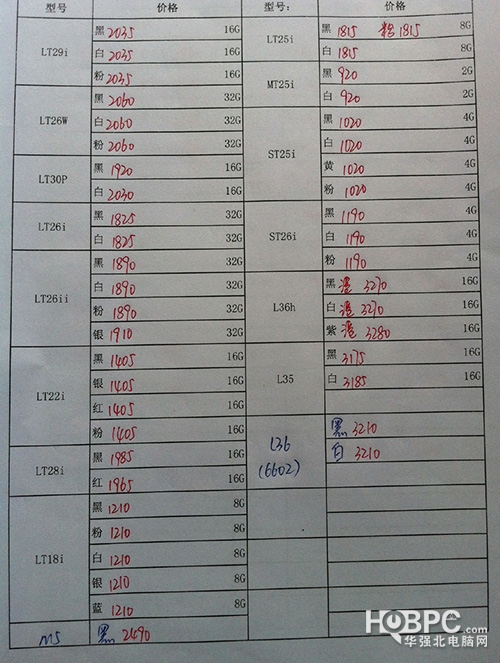 型号 价格
LT29i
黑 2035 16G
白 2035 16G
粉 2035 16G
LT26W
黑 2060 32G
白 2060 32G
粉 2060 32G
LT30P
黑 1920 16G
白 2030 16G
LT26i
黑 1825 32G
白 1825 32G
LT26ii
黑 1890 32G
白 1890 32G
粉 1890 32G
银 1910 32G
LT22i
黑 1405 16G
银 1405 16G
红 1405 16G
粉 1405 16G
LT28i
黑 1985 16G
红 1965 16G
LT18i
黑 1210 8G
粉 1210 8G
白 1210 8G
银 1210 8G
蓝 1210 8G
M5 黑 2490
型号: 价格
LT25i
黑 1815 粉 1815 8G
白 1815 8G
MT25i
黑 920 2G
白 920 2G
ST25i
黑 1020 4G
白 1020 4G
黄 1020 4G
粉 1020 4G
ST26i
黑 1190 4G
白 1190 4G
粉 1190 4G
L36h
黑 港 3270 16G
白 港 3270 16G
紫 港 3280 16G
L35
黑 3175 16G
白 3185 16G
L36
(6602)
黑 3210
白 3210
HQBPC.com
华强北电脑网